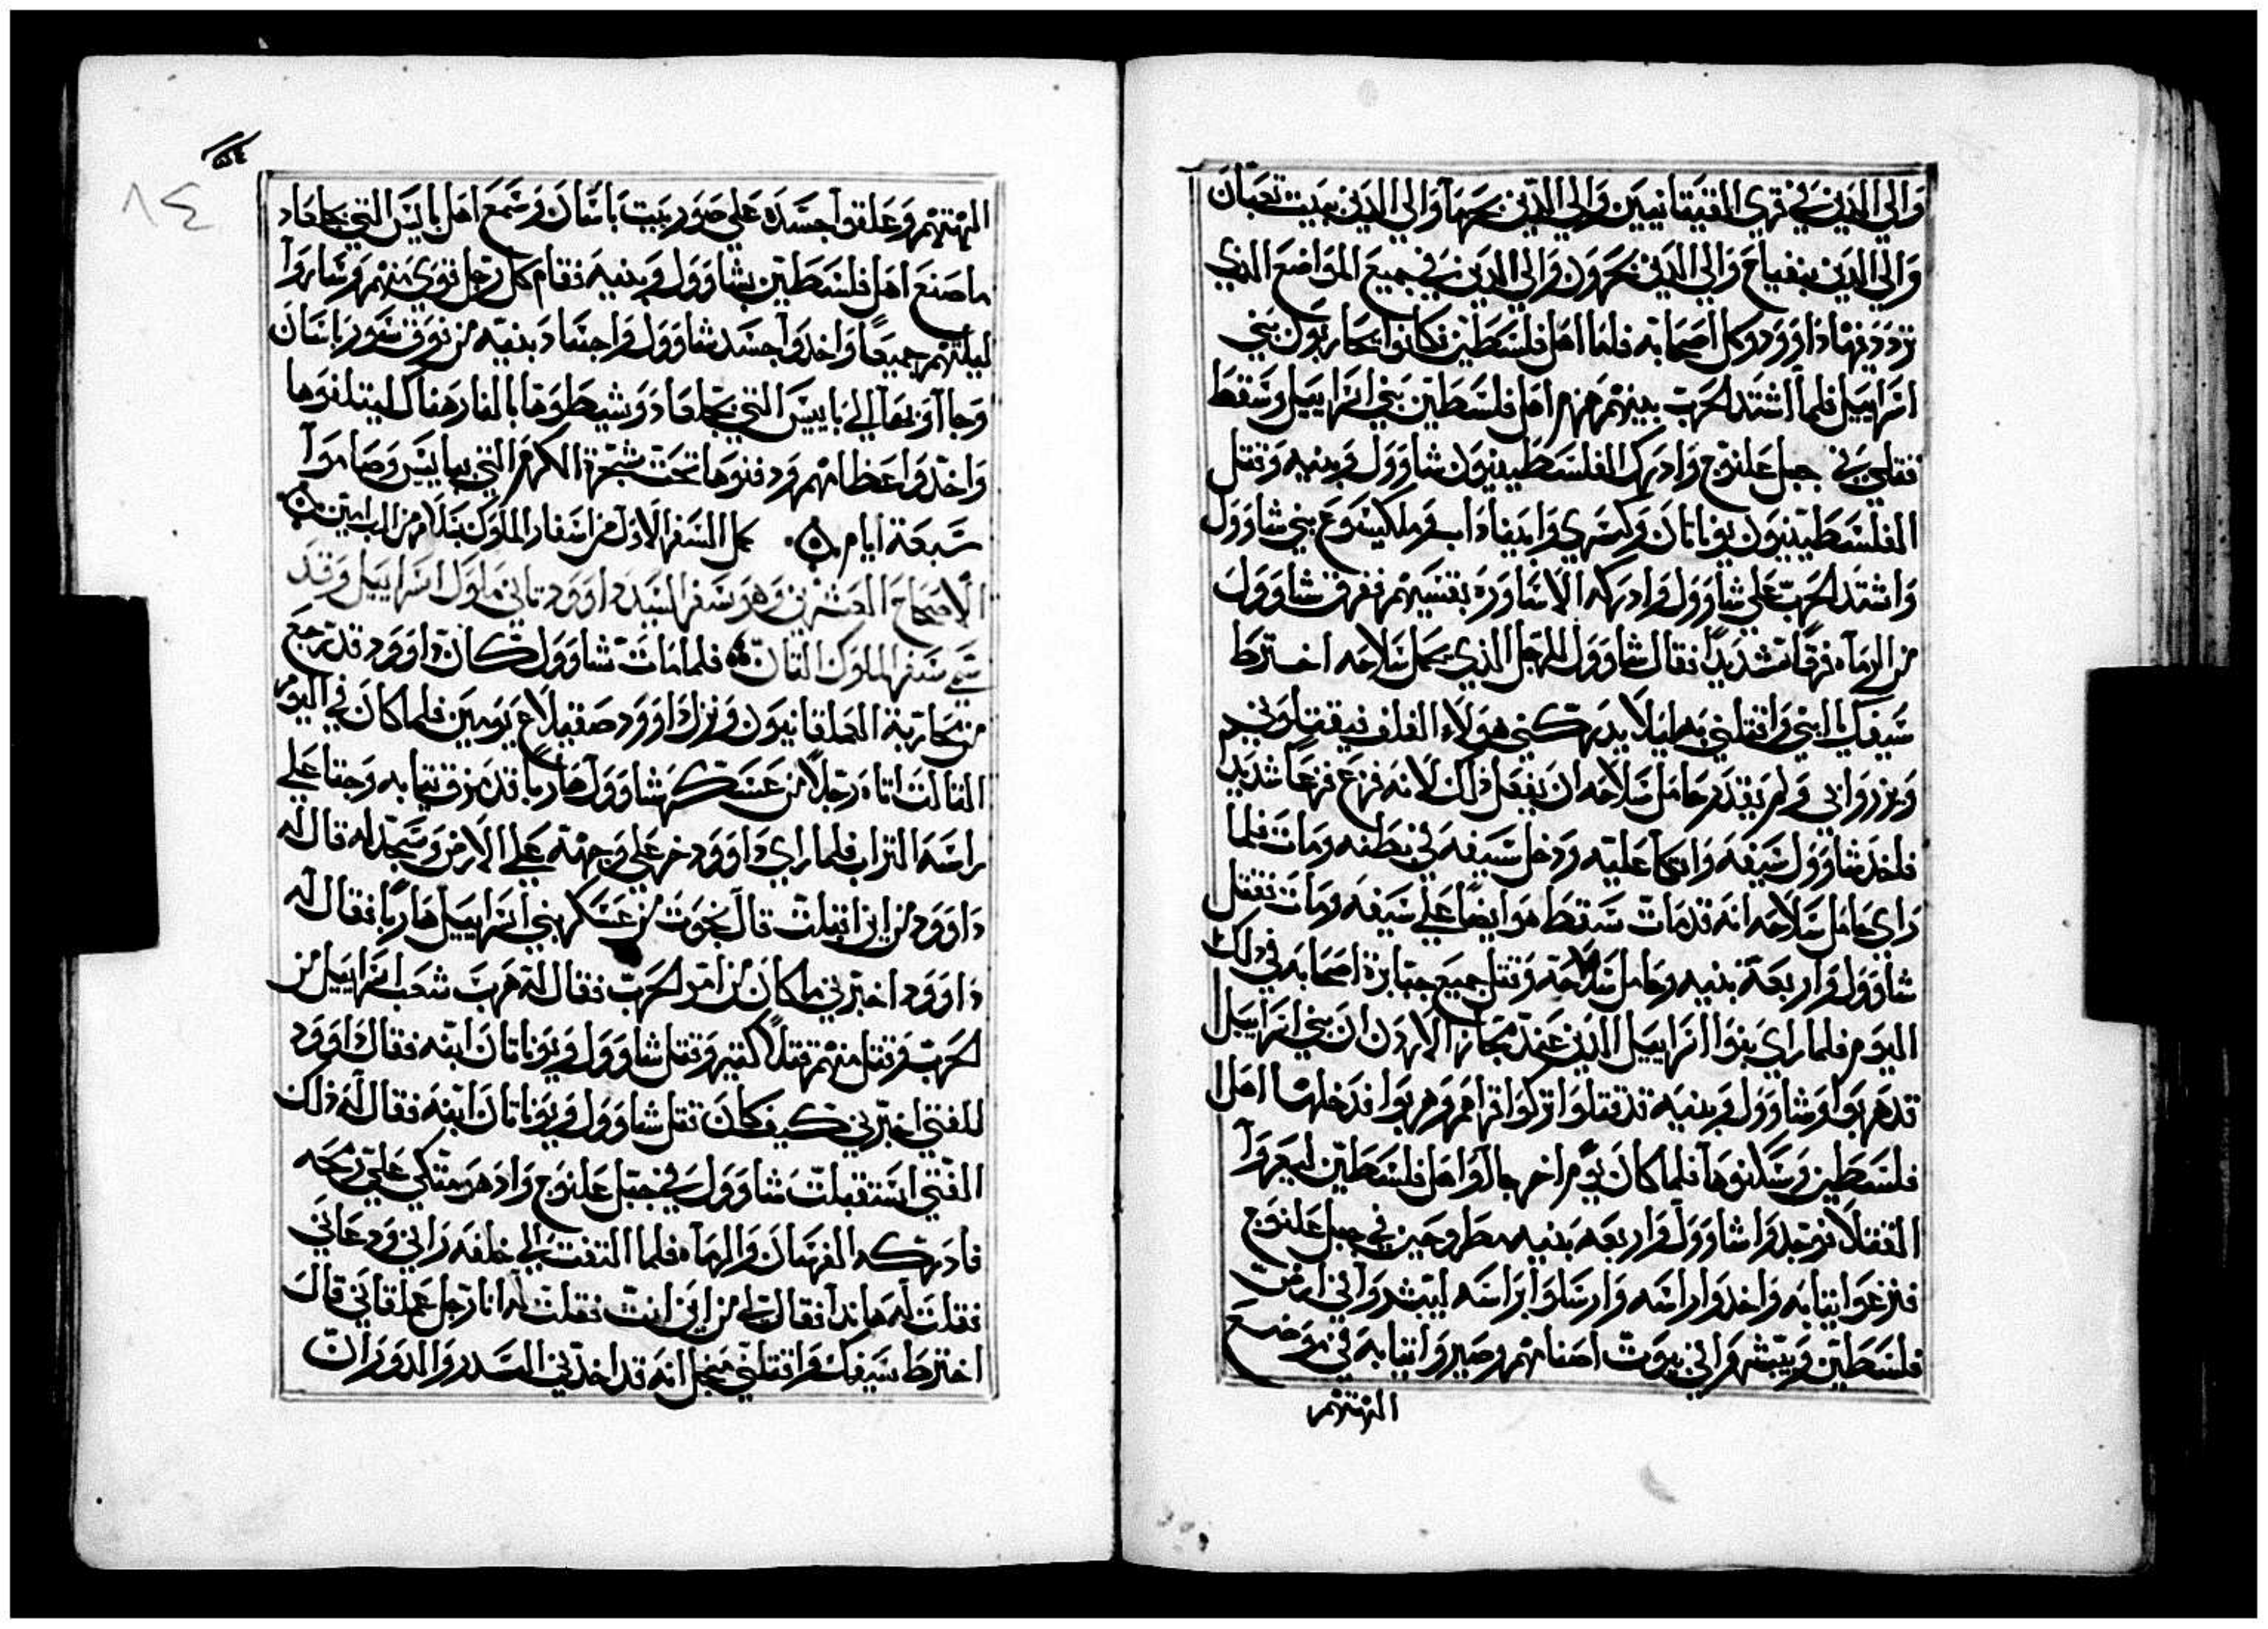 والى الذين في قري القيقانيين والى الذين بحرما والى الذين ببيت تعبان
والى الذين بنفياح والى الذين بحرون والى الذين في جميع المواضع الذي
تردد فيها داوود وكل اصحابه فاما اهل فلسطين فكانوا يحاربون بني
اسراييل فلما اشتد الحرب بينهم هزم اهل فلسطين بني اسراييل وسقط
قتلي في جبل علنوح وادرك الفلسطينيون شاوول وبنيه وقتل
الفلسطينيون يوناتان وكسري واميناداب وملكيشوع بني شاوول
واشتد الحرب على شاوول وادركه الاساوره بقسيهم ففرق شاوول
من الرماه فرقا شديدا فقال شاوول للرجل الذي يحمل سلاحه اخترط
سيفك ابني واقتلني به ليلا يدركني هولاء الغلف فيقتلوني
ويزروا بي ولم يقدم حامل سلاحه ان يفعل ذلك لانه فزع فزعا شديد
فاخذ شاوول سيفه واتكا عليه ودخل سيفه في بطنه ومات فلما
راى حامل سلاحه انه قد مات سقط هو ايضا على سيفه ومات فقتل
شاوول واربعة بنيه وحامل سلاحه وقتل جميع جبابرة اصحابه في ذلك
اليوم فلما راي بنوا اسراييل الذين عند مجاز الاردن ان بني اسراييل
قد هربوا وشاوول وبنيه قد قتلوا تركوا قراهم وهربوا فدخلها اهل
فلسطين وسكنوها فلما كان يوم اخر جاوا اهل فلسطين ليعروا
القتلا فوجدوا شاوول واربعه بنيه مطروحين في جبل علنوح
فنزعوا ثيابه واخذوا راسه وارسلوا براسه ليبشروا في ارض
فلسطين ويبشروا في بيوت اصنامهم وصيروا ثيابه في موضع
الهتهم
الهتهم وعلقوا جسده على صور بيت باسان وسمع اهل يابيس التي بجلعاد
ما صنع اهل فلسطين بشاوول وبنيه فقام كل رجل قوي منهم وساروا
ليلتهم جميعا واخدوا جسد شاوول واجساد بنيه من فوق سور باسان
وجاآوا بها الي يابيس التي بجلعاد وشيطوها بالنار هناك ليتلفوها
واخدوا عظامهم ودفنوها تحت شجرة الكرم التي بيابيس وصاموا
سبعة ايام كمل السفر الاول من اسفار الملوك بسلام من الرب امين
الاصحاح العشرين وهو سفر السيد داوود تاني ملوك اسراييل وقد
سمي سفر الملوك التاني فلما مات شاوول كان داوود قد رجع
من محاربة العملقانيون ونزل داوود صقيلاع يومين فلما كان في اليوم
التالت اتاه رجلا من عسكر شاوول هاربا قد مزق ثيابه وجثا على
راسه التراب فلما راي داوود خر على وجهه على الارض وسجد له قال له
داوود من اين اقبلت قال نجوت من عسكر بني اسراييل هاربا فقال له
داوود اخبرني ما كان من امر الحرب فقال له هرب شعب اسراييل من
الحرب وقتل منهم قتلا كتير وقتل شاوول ويوناتان ابنه فقال داوود
للفتي اخبرني كيف كان قتل شاوول ويوناتان ابنه فقال له ذلك
الفتي استقبلت شاوول في جبل علنوح واد هو متكي علي رمحه
فادركه الفرسان والرماه فلما التفت الي خلفه راني ودعاني
فقلت له هانذا فقال لي من اين انت فقلت له انا رجل عملقاني قال
اخترط سيفك واقتلني بعجل انه قد اخدني السدر والدوران